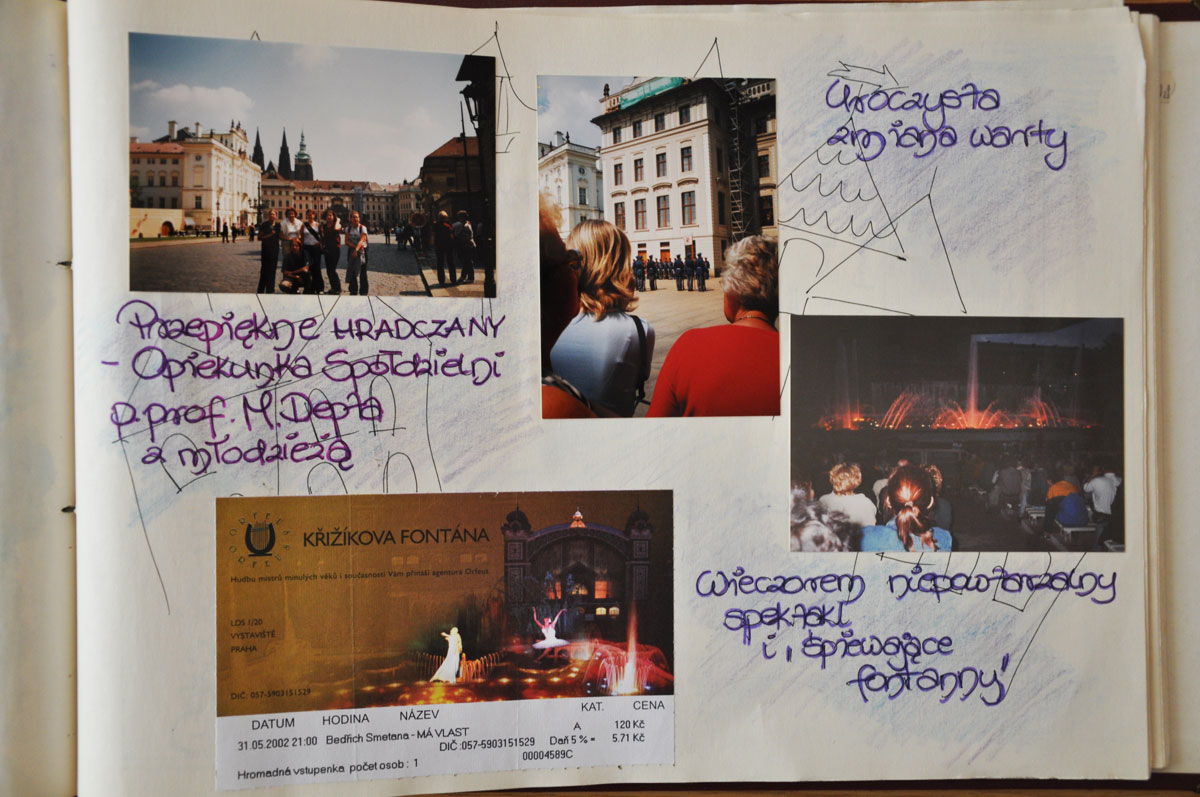 Uroczysta
zmiana warty
Przepiękne HRADCZANY
- Opiekunka Spółdzielni
p. prof. M. Depta
z młodzieżą
KŘIŽÍKOVA FONTÁNA
Hudbu mistrů minulých věků i současnosti Vám přináší agentura Orfeus
LOS 1/20
VÝSTAVIŠTĚ
PRAHA
DIČ: 057-5903151529
DATUM HODINA NÁZEV KAT. CENA
31.05.2002 21:00 Bedřich Smetana - MÁ VLAST A 120 Kč
DIČ :057-5903151529 Daň 5 % = 5.71 Kč
00004589C
Hromadná vstupenka počet osob : 1
Wieczorem niepowtarzalny
spektakl
i „śpiewające
fontanny"